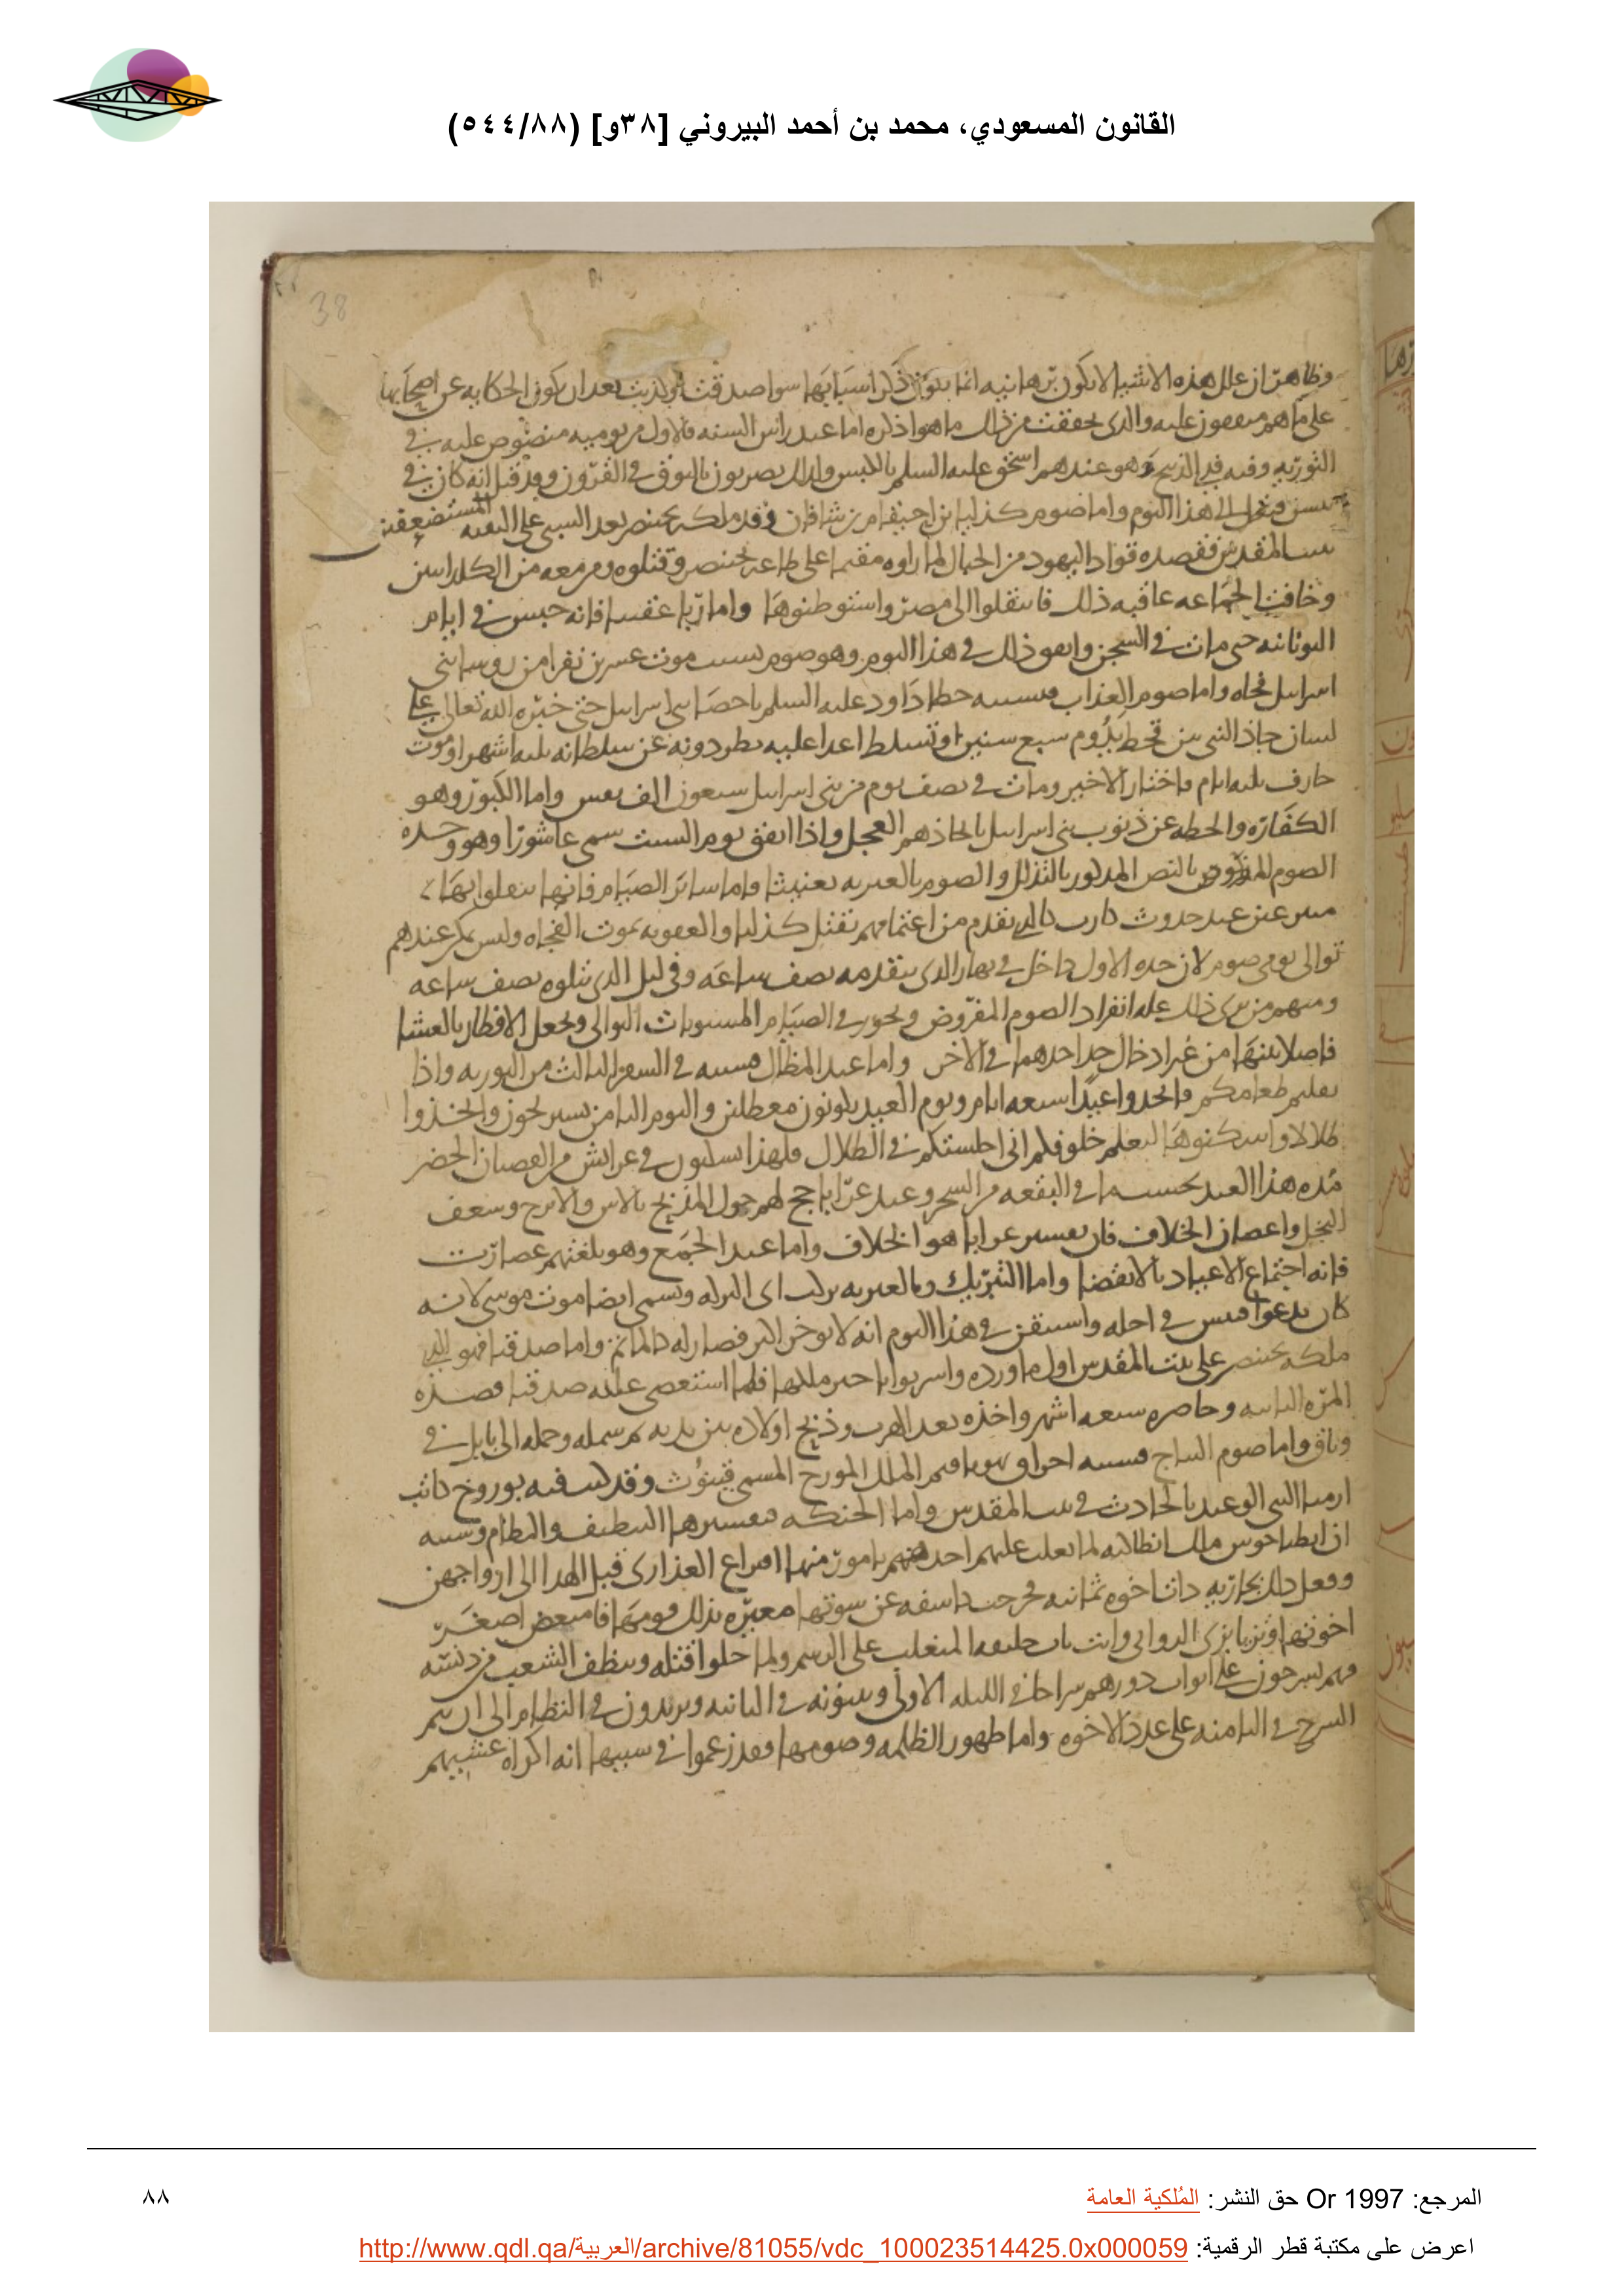 القانون المسعودي، محمد بن أحمد البيروني [٣٨و] (٥٤٤/٨٨)
38
وظاهر ان علل هذه الاشيا لا تكون برهانيه انما يكون ذكر اسبابها سوا صدقت او كذبت بعد ان تكون الحكايه عن اصحابها
على ما هم متفقون عليه والذى تحققت من ذلك ما هو اذكره اما عيد راس السنه فالاول من يوميه منصوص عليه فى
التوريه وفيه فدى الذبيح وهو عندهم اسحق عليه السلم بالكبش ولذلك يضربون بالبوق فى القرون وقد قيل انه كان فى
هذا اليوم واما صوم كذليا بن احيقام بن شافان وقد ملكه بختنصر بعد السبى على البقيه المستضعفين
ببيت المقدس فقصده قواد اليهود من الجبال لما راوه مقيما على طاعه بختنصر وقتلوه ومن معه من الكلدانيين
وخافت الجماعه عاقبه ذلك فانتقلوا الى مصر واستوطنوها واما ربا عقيبا فانه حبس فى ايام
اليونانيه حتى مات فى السجن واتفق ذلك فى هذا اليوم وهو صوم بسبب موت عشرين نفرا من روسا بنى
اسرايل فجاه واما صوم العذاب فسببه خطا داود عليه السلم باحصا بنى اسرايل حتى خيره الله تعالى على
لسان جاذ النبى بين قحط يدوم سبع سنين او تسلط اعدا عليه يطردونه عن سلطانه ثلثه اشهر او موت
جارف ثلثه ايام فاختار الاخير ومات فى نصف يوم من بنى اسرايل سبعون الف نفس واما الكبور وهو
الكفاره والحطه عن ذنوب بنى اسرايل باتخاذهم العجل واذا اتفق يوم السبت سمى عاشورا وهو وحده
الصوم المفروض بالنص المذكور بالتذلل والصوم بالعبريه تعنيثا واما سائر الصيام فانها
عند حدوث كالذى تقدم من اغتمامهم بقتل كذليا والعقوبه بموت الفجاه وليس يمكن عندهم
توالى يومى صوم لان حده الاول داخل فى نهار الذى يتقدمه نصف ساعه وفى ليل الذى يتلوه نصف ساعه
ومنهم من يرى ذلك عله انفراد الصوم المفروض ويجوز فى الصيام التوالى ويجعل الافطار بالعشا
فاصلا بينها من غير ادخال حد احدهما فى الاخر واما عيد المظال فسببه فى السفر الثالث من التوريه واذا
نقلتم طعامكم فاتخذوا عيدا سبعه ايام ويوم العيد يكونون معطلين واليوم الثامن يستريحون واتخذوا
ظلالا واسكنوها ليعلم خلوفكم انى اجلستكم فى الظلال فلهذا يسكنون فى عرايش من الاغصان الخضر
مده هذا العيد وعيد عرابا حج لهم حول المذبح بالاس والاترج وسعف
النخل واغصان الخلاف فان تفسير عرابا هو الخلاف واما عيد الجمع وهو بلغتهم عصارت
فانه اجتماع الاعياد بالانقضا واما التبريك وبالعبريه بركت اى البركه وتسمى ايضا موت موسى لانه
كان يدعوا فى اجله واستيقن فى هذا اليوم انه لا يوخر اكثر فصار له كالماتم واما صدقيا فهو الذى
ملكه بختنصر على بيت المقدس اول ما ورده واسر يوياخين ملكها فلما استعصى عليه صدقيا قصده
المره الثانيه وحاصره سبعه اشهر واخذه بعد الهرب وذبح اولاده بين يديه ثم سمله وحمله الى بابل فى
وثاق واما صوم فسببه احراق يهوياقيم الملك المسمى قينوث وقد كتب فيه بوروخ كاتب
ارميا النبى الوعيد بالحادث فى بيت المقدس واما الحنكه فتفسيرها التنظيف والنظام وسببه
ان انطياخوس ملك انطاكيه لما تغلب عليهم احد منهم يامور منها افتراع العذارى قبل الهدا الى ازواجهن
وفعل ذلك بجاريه ذات اخوه ثمانيه فخرجت كاشفه عن سوتها معيره بذلك قومها فامتعض اصغر
اخوتها المتغلب على الرسم ولما خلوا قتله وينظف الشعب من دنسه
فهم يسرجون على ابواب دورهم سراجا فى الليله الاولى ويثنونه فى الثانيه ويزيدون فى النظام الى ان يتم
السرج فى الثامنه على عدد الاخوه واما ظهور الظلمه وصومها فقد زعموا فى سببها انه اكراه
المرجع: Or 1997 حق النشر: المُلكية العامة
٨٨
اعرض على مكتبة قطر الرقمية: http://www.qdl.qa/العربية/archive/81055/vdc_100023514425.0x000059